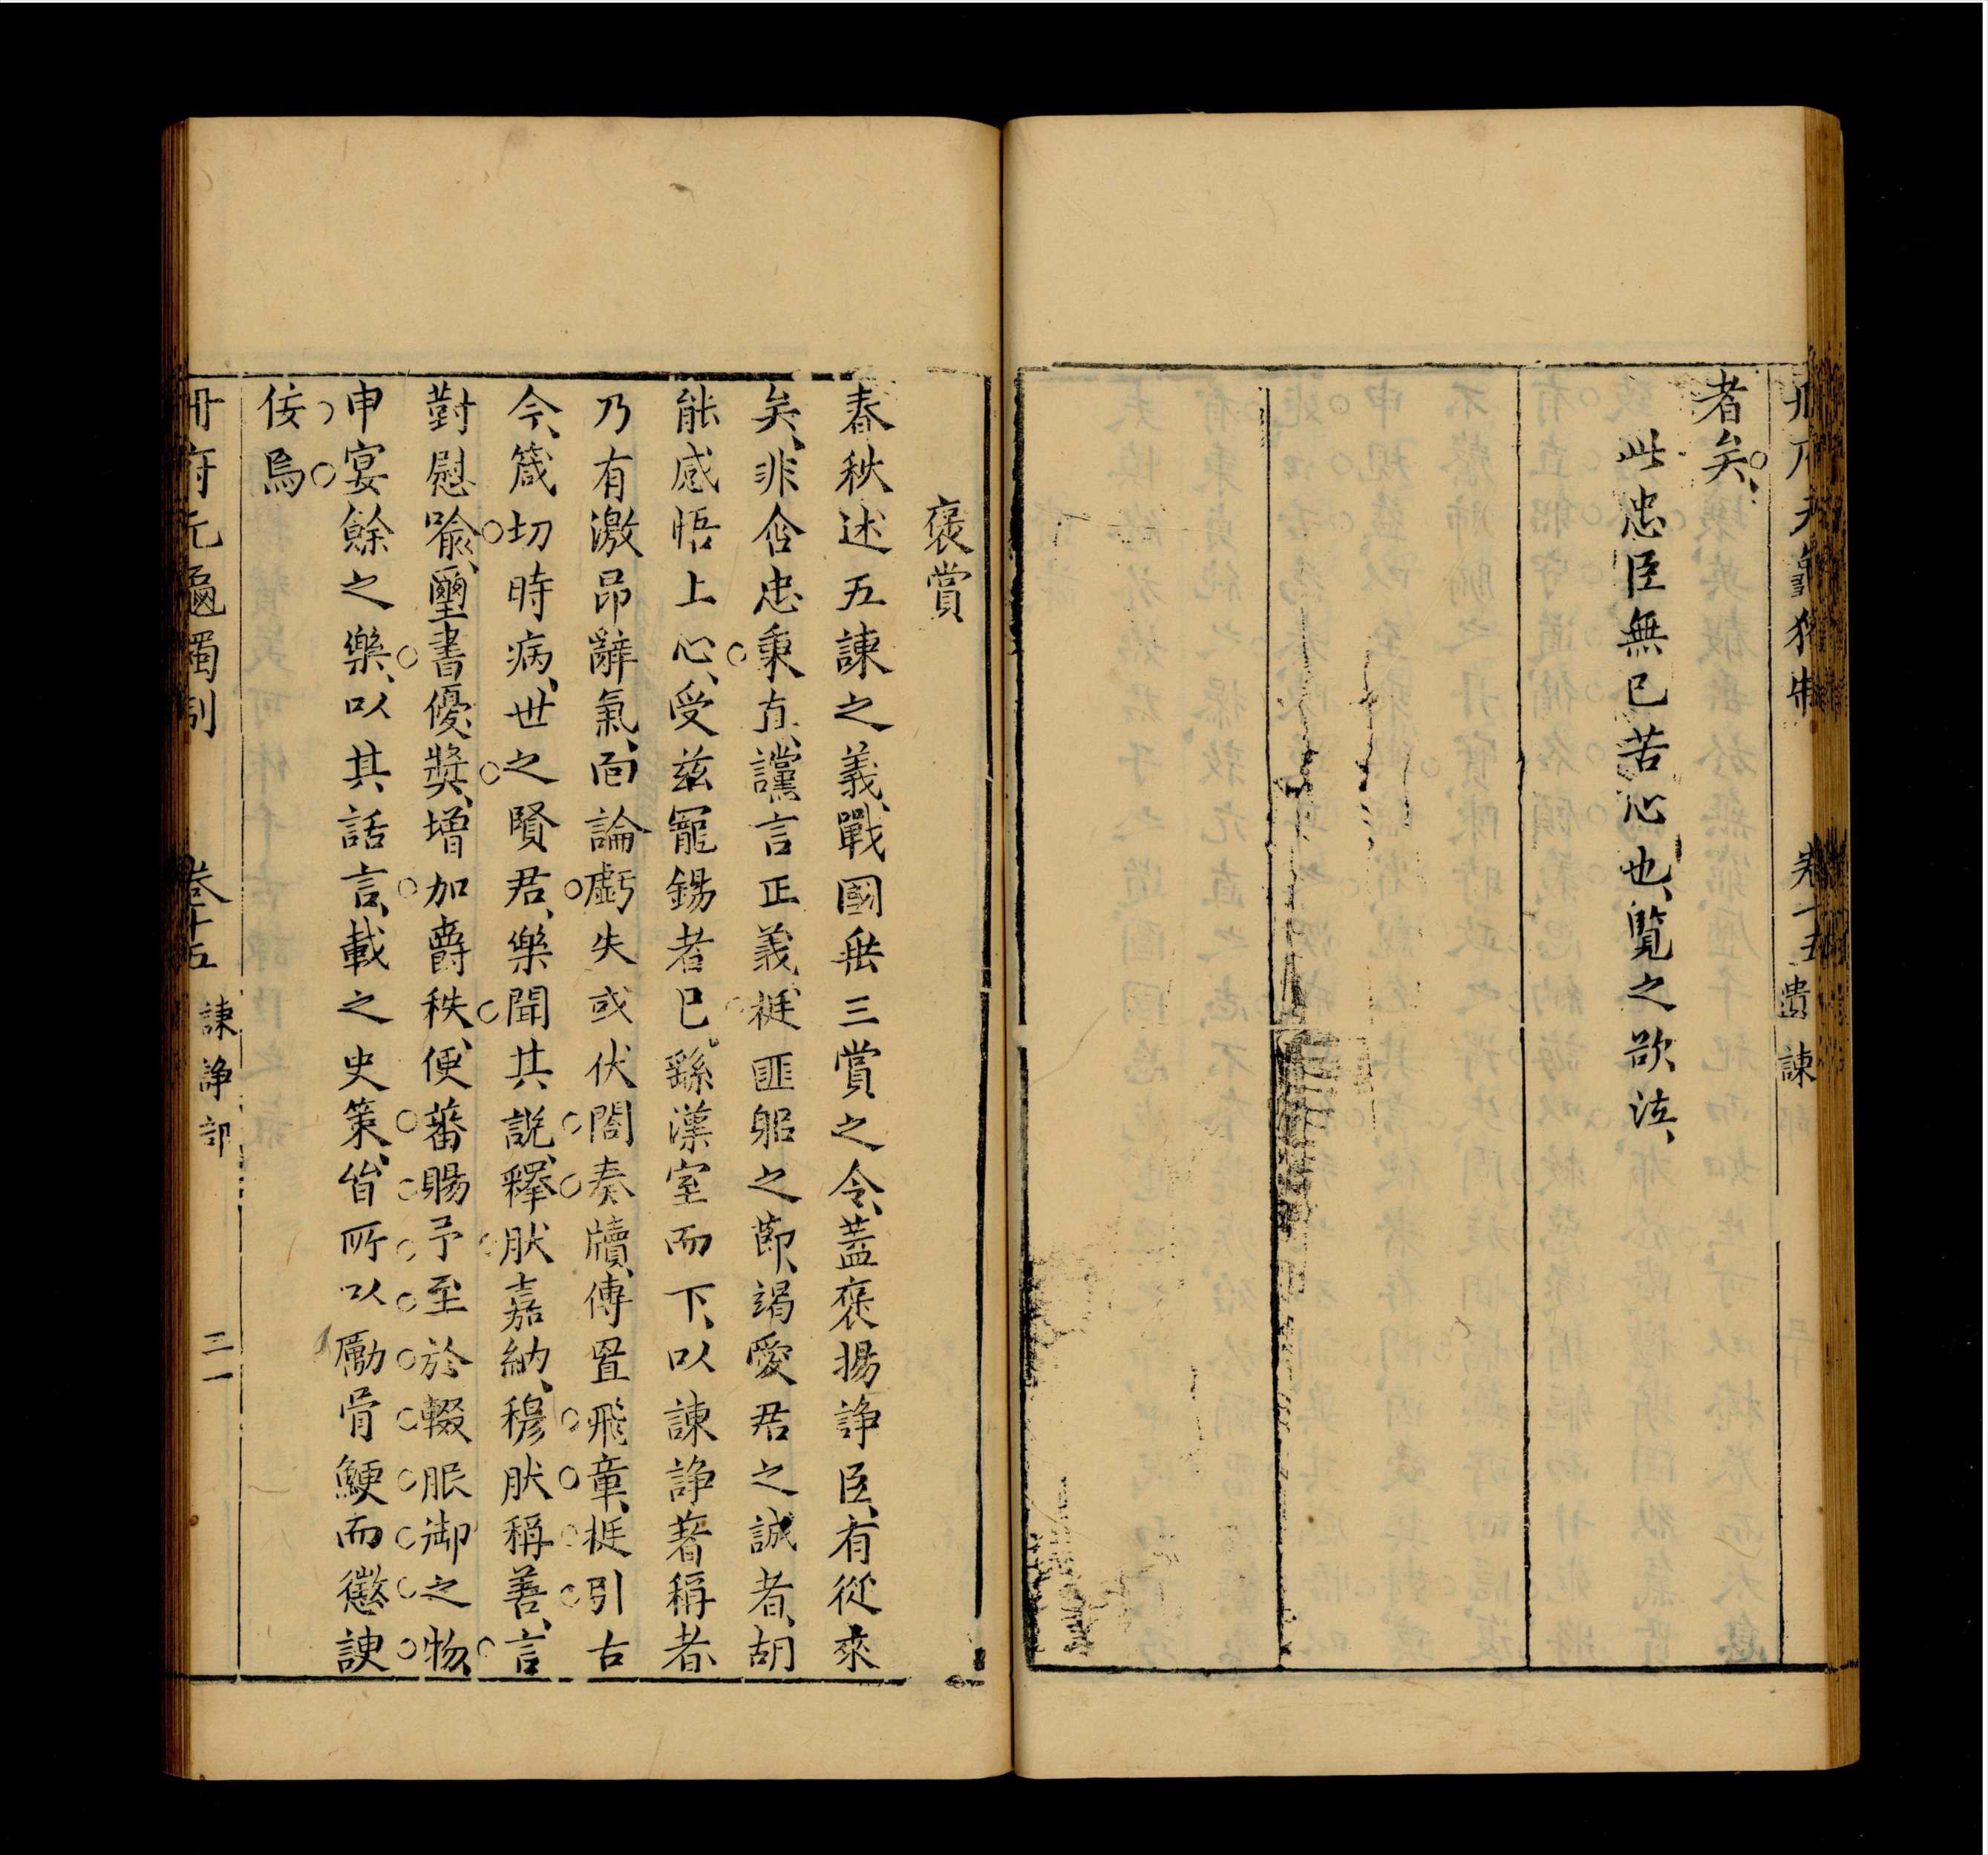 者矣、
此忠臣無已苦心也、覽之欲泣、
卷十五 遺諫
褒賞
春秋述五諫之義、戰國垂三賞之令、葢褒揚諍臣、有從來
矣、非含忠秉直、讜言正義、挺匪躬之節、竭愛君之誠者、胡
能感悟上心、受茲寵錫者已。繇漢室而下、以諫諍著稱者
乃有激昂辭氣、面論虧失、或伏閤奏牘、傳置飛章、挺引古
今、箴切時病、世之賢君、樂聞其說、釋肰嘉納、穆肰稱善、言
對慰喻、璽書優奬、增加爵秩、便蕃賜予、至於輟服御之物、
申宴餘之樂、以其話言、載之史策、皆所以勵骨鯁而懲諛
佞焉
冊府元龜獨制 卷十五 諫諍部 三一